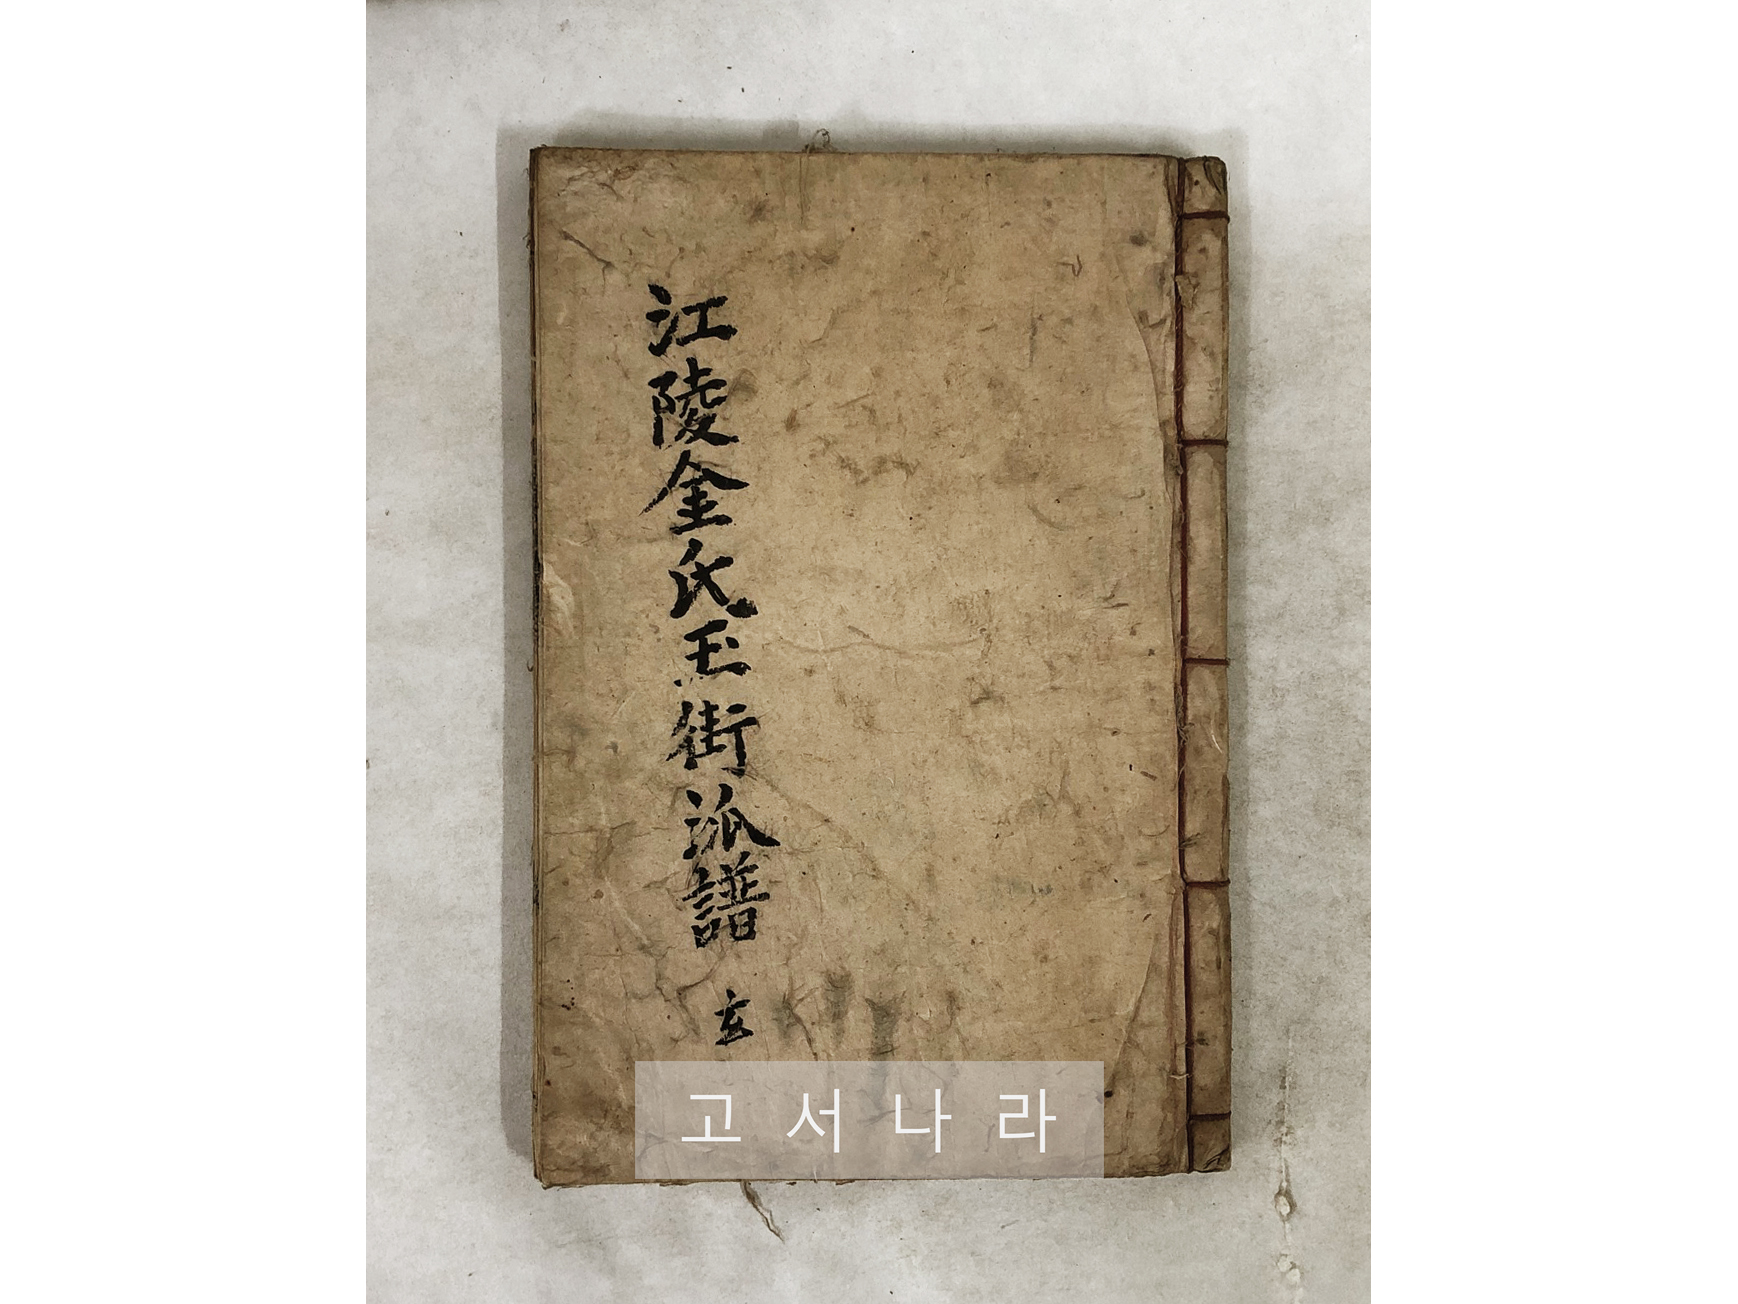 江陵金氏玉街派譜 玄
고서나라